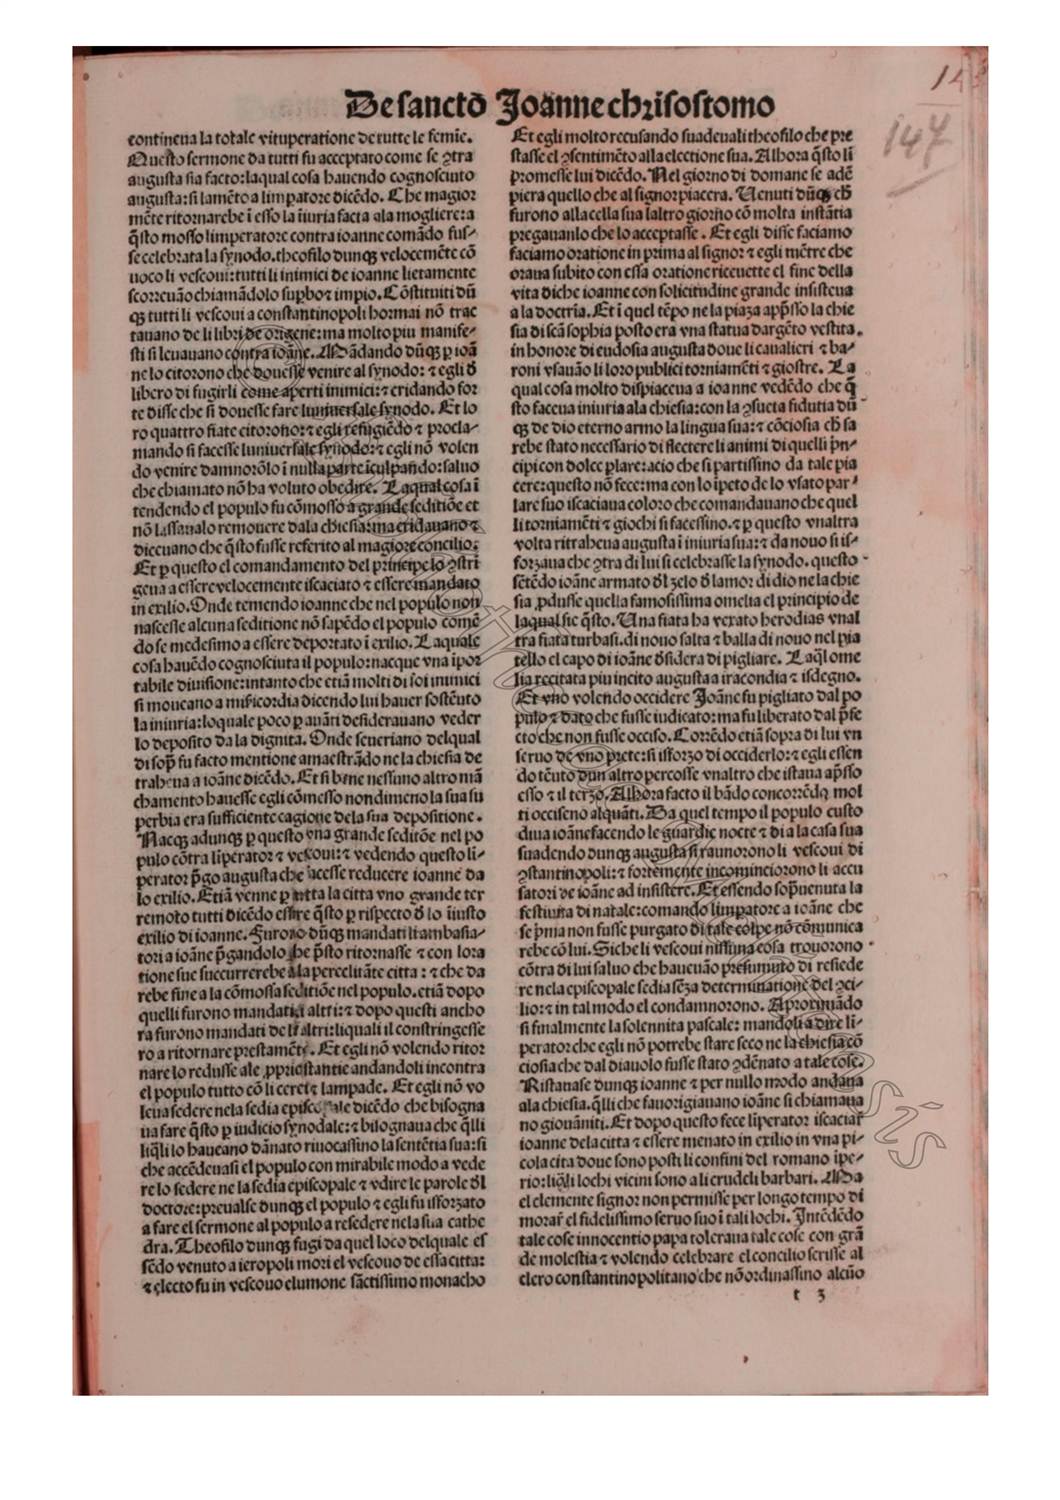 De sanctō Joānne chrisostomo
147
contineua la totale vituperatione de tutte le femīe.
Questo sermone da tutti fu acceptato come se ɔtra
augusta sia facto: laqual cosa hauendo cognosciuto
augusta: si lamēto a limpatore dicēdo. Che magior
mēte ritornarebe ī esso la īiuria facta ala mogliere: a
q̄sto mosso limperatore contra ioanne comādo fus⸗
se celebrata la synodo. theofilo dunqꝫ velocemēte cō
uoco li vescoui: tutti li inimici de ioanne lietamente
scorreuāo chiamādolo supbo ⁊ impio. Cōstituiti dū
qꝫ tutti li vescoui a constantinopoli hormai nō trac
tauano de li libri de origene: ma molto piu manife⸗
sti si leuauano contra ioāne. Mādando dūqꝫ ꝑ ioā
ne lo citorono che douesse venire al synodo: ⁊ egli d̄
libero di fugirli come aperti inimici: ⁊ cridando for
te disse che si douesse fare luniuersale synodo. Et lo
ro quattro fiate citorono: ⁊ egli refugiēdo ⁊ procla⸗
mando si facesse luniuersale synodo: ⁊ egli nō volen
do venire damnorōlo ī nulla parte īculpando: saluo
che chiamato nō ha voluto obedire. Laqual cosa ī
tendendo el populo fu cōmosso a grande seditiōe et
nō lassaualo remouere dala chiesia: ma cridauano ⁊
diceuano che q̄sto fusse referito al magiore concilio:
Et ꝑ questo el comandamento del principe lo ɔstrī
geua a essere velocemente iscaciato ⁊ essere mandato
in exilio. Onde temendo ioanne che nel populo non
nascesse alcuna seditione nō sapēdo el populo comē
do se medesimo a essere deportato ī exilio. Laquale
cosa hauēdo cognosciuta il populo: nacque vna īpor
tabile diuisione: intanto che etiā molti di soi inimici
si moueano a mīricordia dicendo lui hauer sostēuto
la iniuria: loquale poco ꝑ auāti desiderauano veder
lo deposito da la dignita. Onde seueriano delqual
di sop̄ fu facto mentione amaestrādo ne la chiesia de
traheua a ioāne dicēdo. Et si bene nessuno altro mā
chamento hauesse egli cōmesso nondimeno la sua su
perbia era sufficiente cagione dela sua depositione.
Nacqꝫ adunqꝫ ꝑ questo vna grande seditiōe nel po
pulo cōtra līperator ⁊ vescoui: ⁊ vedendo questo lī⸗
perator p̄go augusta che facesse reducere ioanne da
lo exilio. Etiā venne ꝑ tutta la citta vno grande ter
remoto tutti dicēdo essere q̄sto ꝑ rispecto d̄ lo īiusto
exilio di ioanne. Furono dūqꝫ mandati li ambasia⸗
tori a ioāne p̄gandolo che p̄sto ritornasse ⁊ con lora
tione sue succurrerebe ala pereclitāte citta: ⁊ che da
rebe fine a la cōmossa seditiōe nel populo. etiā dopo
quelli furono mandati altri: ⁊ dopo questi ancho
ra furono mandati de li altri: liquali il constringesse
ro a ritornare prestamēte. Et egli nō volendo ritor
nare lo redusse ale ꝓprie stantie andandoli incontra
el populo tutto cō li cerei ⁊ lampade. Et egli nō vo
leua sedere nela sedia episcopale dicēdo che bisogna
ua fare q̄sto ꝑ iudicio synodale: ⁊ bisognaua che q̄lli
liq̄li lo haueano dānato riuocassino la sentētia sua: si
che accēdeuasi el populo con mirabile modo a vede
re lo sedere ne la sedia episcopale ⁊ vdire le parole d̄l
doctore: preualse dunqꝫ el populo ⁊ egli fu isforzato
a fare el sermone al populo a resedere nela sua cathe
dra. Theofilo dunqꝫ fugi da quel loco delquale es
sēdo venuto a ieropoli mori el vescouo de essa citta:
⁊ electo fu in vescouo elumone sāctissimo monacho
Et egli molto recusando suadeuali theofilo che pre
stasse el ɔsentimēto alla electione sua. Alhora q̄sto li
promesse lui dicēdo. Nel giorno di domane se adē
piera quello che al signor piacera. Uenuti dūqꝫ ch̄
furono alla cella sua laltro giorno cō molta instātia
pregauanlo che lo acceptasse. Et egli disse faciamo
faciamo oratione in prima al signor ⁊ egli mētre che
oraua subito con essa oratione riceuette el fine della
vita diche ioanne con solicitudine grande insisteua
a la doctrīa. Et ī quel tēpo ne la piaza app̄sso la chie
sia di scā sophia posto era vna statua dargēto vestita.
in honore di eudosia augusta doue li caualieri ⁊ ba⸗
roni vsauāo li loro publici torniamēti ⁊ giostre. La
qual cosa molto dispiaceua a ioanne vedēdo che q̄
sto faceua iniuria ala chiesia: con la ɔsueta fidutia dū
qꝫ de dio eterno armo la lingua sua: ⁊ cōciosia ch̄ sa
rebe stato necessario di flectere li animi di quelli p̄n⸗
cipi con dolce ꝑlare: acio che si partissino da tale pia
cere: questo nō fece: ma con lo īpeto de lo vsato par⸗
lare suo iscaciaua coloro che comandauano che quel
li torniamēti ⁊ giochi si facessino. ⁊ ꝑ questo vnaltra
volta ritraheua augusta ī iniuria sua: ⁊ da nouo si is⸗
forzaua che ɔtra di lui si celebrasse la synodo. questo
sētēdo ioāne armato d̄l zelo d̄ lamor di dio ne la chie
sia ꝓdusse quella famosissima omelia el principio de
laqual sie q̄sto. Una fiata ha vexato herodias vnal
tra fiata turbasi. di nouo salta ⁊ balla di nouo nel pia
tello el capo di ioāne d̄sidera di pigliare. Laq̄l ome
lia recitata piu incito augusta a iracondia ⁊ isdegno.
Et vno volendo occidere Joāne fu pigliato dal po
pulo ⁊ dato che fusse iudicato: ma fu liberato dal p̄fe
cto che non fusse occiso. Corrēdo etiā sopra di lui vn
seruo de vno prete: si isforzo di occiderlo: ⁊ egli essen
do tēuto dun altro percosse vnaltro che istaua ap̄sso
esso ⁊ il terzo. Alhora facto il bādo concorrēdo mol
ti occiseno alquāti. Da quel tempo il populo custo
diua ioāne facendo le guardie nocte ⁊ di a la casa sua
suadendo dunqꝫ augusta si raunorono li vescoui di
ɔstantinopoli: ⁊ fortemente incominciorono li accu
satori de ioāne ad insistere. Et essendo sop̄uenuta la
festiuita di natale: comando limpatore a ioāne che
se p̄ma non fusse purgato di tale colpe nō cōmunica
rebe cō lui. Siche li vescoui nissuna cosa trouorono
cōtra di lui saluo che haueuāo presumuto di resiede
re nela episcopale sedia sēza determinatione del ɔci⸗
lio: ⁊ in tal modo el condamnorono. Aproximādo
si finalmente la solennita pascale: mandoli a dire lī⸗
perator che egli nō potrebe stare seco ne la chiesia cō
ciosia che dal diauolo fusse stato ɔdēnato a tale cose.
Ristanase dunqꝫ ioanne ⁊ per nullo modo andaua
ala chiesia. q̄lli che fauorigiauano ioāne si chiamaua
no giouāniti. Et dopo questo fece līperator iscaciar̄
ioanne dela citta ⁊ essere menato in exilio in vna pi⸗
cola cita doue sono posti li confini del romano īpe⸗
rio: liq̄li lochi vicini sono a li crudeli barbari. Ma
el clemente signor non permisse per longo tempo di
morar̄ el fidelissimo seruo suo ī tali lochi. Intēdēdo
tale cose innocentio papa toleraua tale cose con grā
de molestia ⁊ volendo celebrare el concilio scrisse al
clero constantinopolitano che nō ordinassino alcūo
t 3